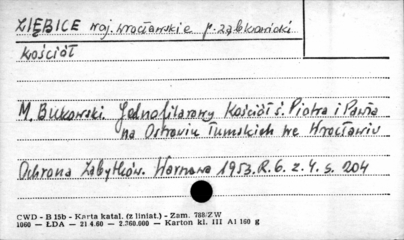 ZIĘBICE woj. wrocławskie p. ząbkowicki
Kościół
M. Bukowski. Jednofilarowy Kościół ś. Piotra i Pawła
na Ostrowiu Tumskich we Wrocławiu
Ochrona Zabytków. Warszawa 1953. R. 6. z. 4. s. 204
CWD - B 15b - Karta katal. (z liniat.) - Zam. 788/ZW
1060 — ŁDA — 21 4.60 — 2.760.000 — Karton kl. III A1 160 g